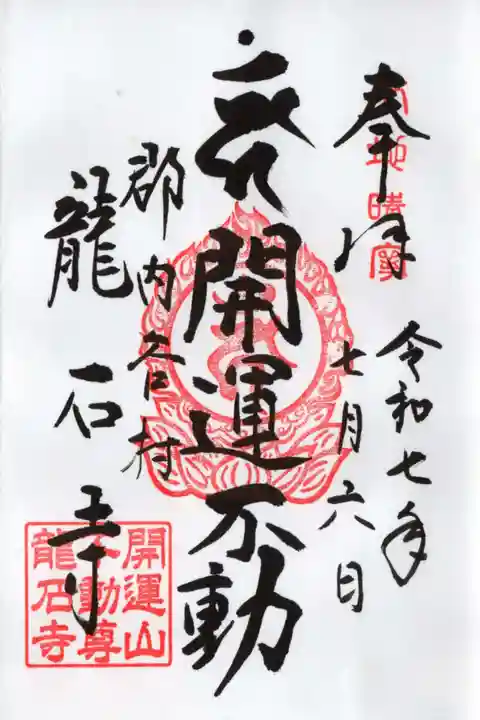 奉拝
令和七年
七月六日
開運不動
郡内
村
龍石寺
開運山
不動尊
龍石寺